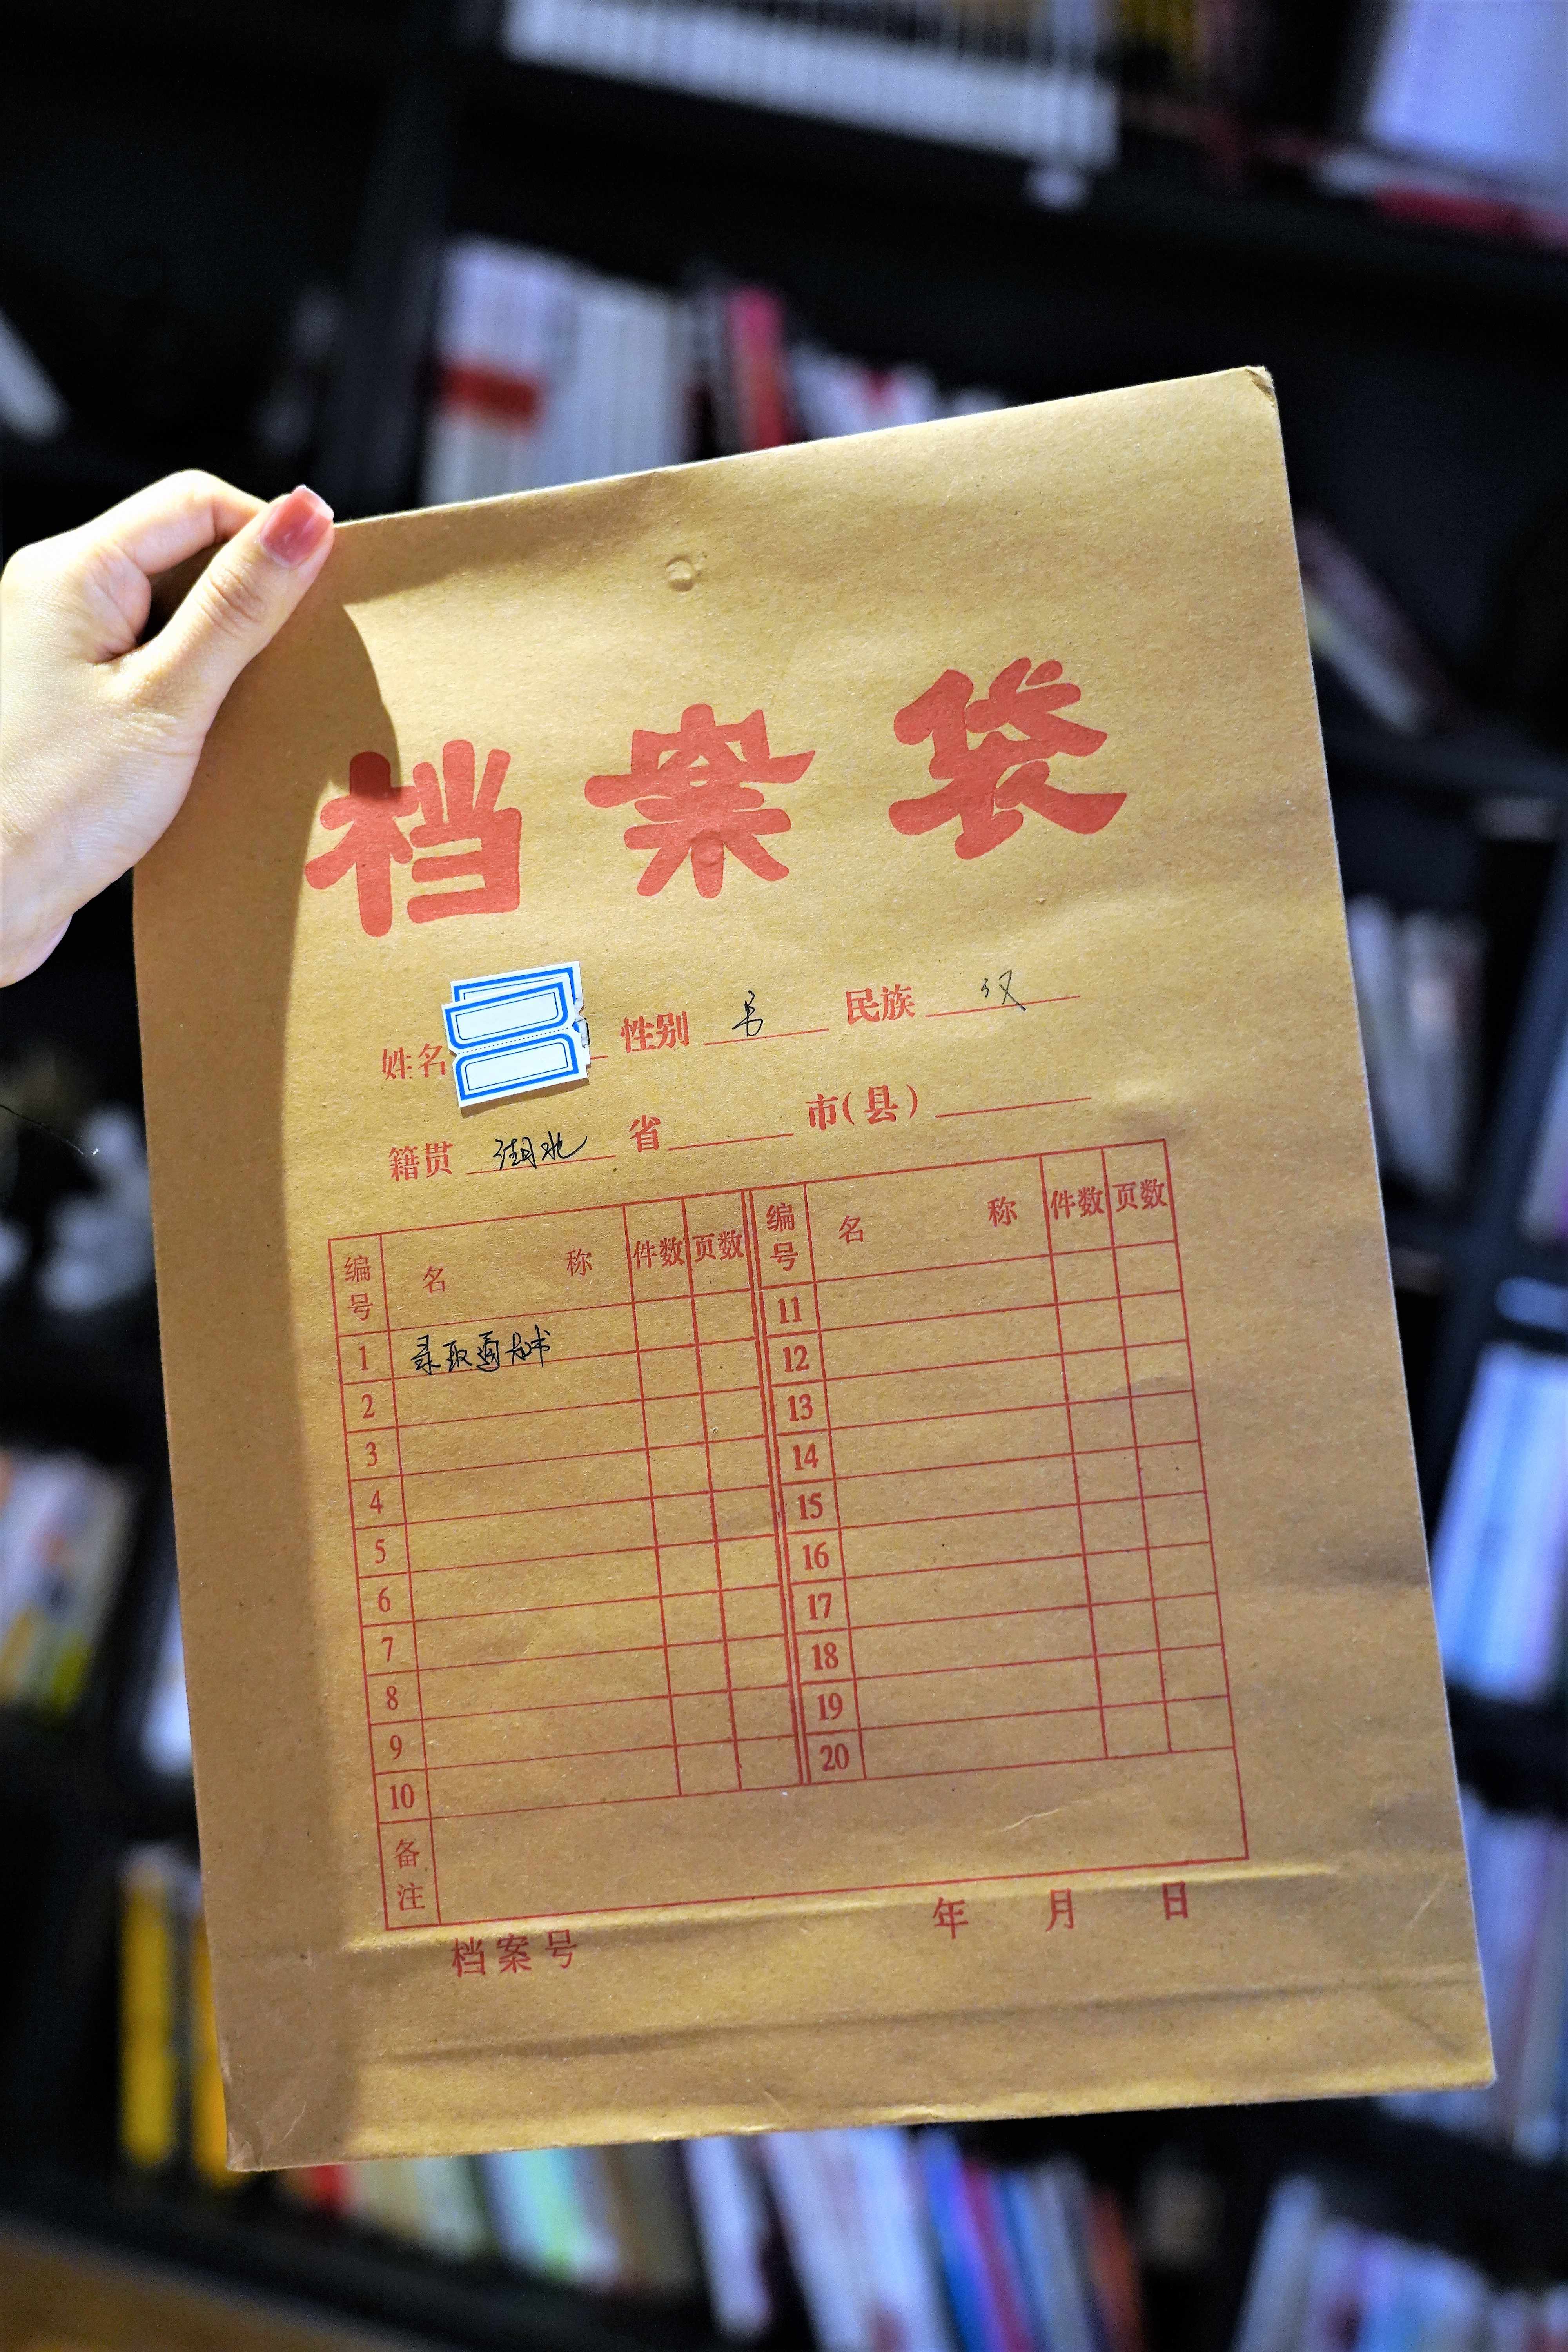 档案袋
姓名 性别 男 民族 汉
籍贯 湖北 省 市(县)
编号 名称 件数 页数 编号 名称 件数 页数
1 录取通知书 11
2 12
3 13
4 14
5 15
6 16
7 17
8 18
9 19
10 20
备注
档案号 年 月 日